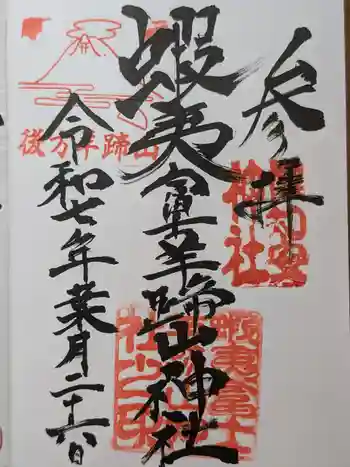 参拝
倶知安
神社
蝦夷富士羊蹄山神社
後方羊蹄山
令和七年葉月二十六日
蝦夷富士
社之印